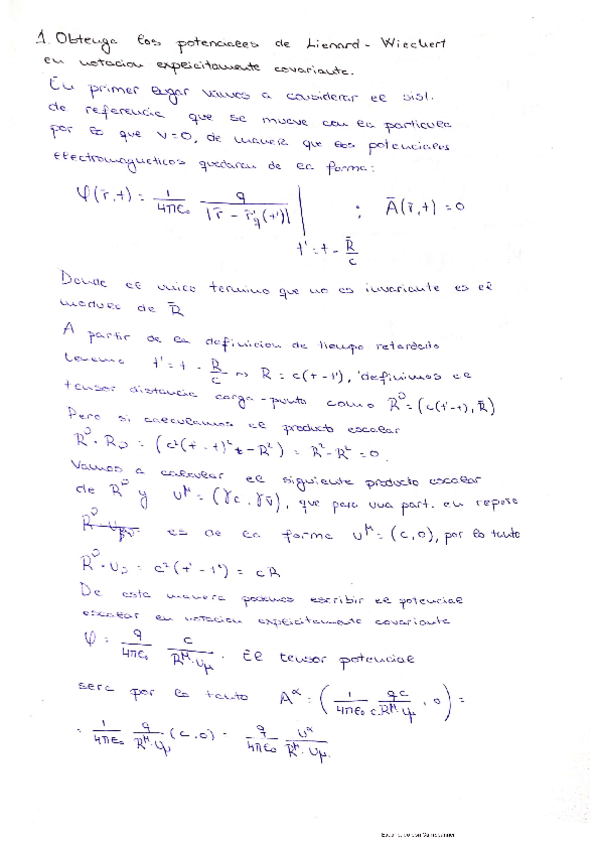 1. Obtenga los potenciales de Lienard - Wiechert
en notación explicitamente covariante.
En primer lugar vamos a considerar el sist.
de referencia que se mueve con la particula
por lo que v=0, de manera que los potenciales
electromagneticos quedaran de la forma:
φ(r̄,t) = 1/4πε₀ q/|r̄ - r̄'q(t')| | t'=t-R̄/c ; Ā(r̄,t) = 0
Donde el unico termino que no es invariante es el
modulo de R̄
A partir de la definicion de tiempo retardado
tenemo t' = t - R/c ⇝ R = c(t-t'), definimos el
tensor distancia carga-punto como R^ν = (c(t'-t), R̄)
Pero si calculamos el producto escalar
R^ν · R_ν = (c²(t'-t)² - R²) = R² - R² = 0.
Vamos a calcular el siguiente producto escalar
de R^ν y U^μ = (γc, γv̄), que para una part. en reposo
es de la forma U^μ = (c,0), por lo tanto
R^ν · U_ν = c²(t'-t') = cR
De esta manera podemos escribir el potencial
escalar en notacion explicitamente covariante
φ = q/4πε₀ c/R^μ·U_μ . El tensor potencial
sera por lo tanto A^α = (1/4πε₀c qc/R^μ·U_μ , 0) =
= 1/4πε₀ q/R^μ·U_μ (c,0) = q/4πε₀ U^α/R^μ·U_μ.